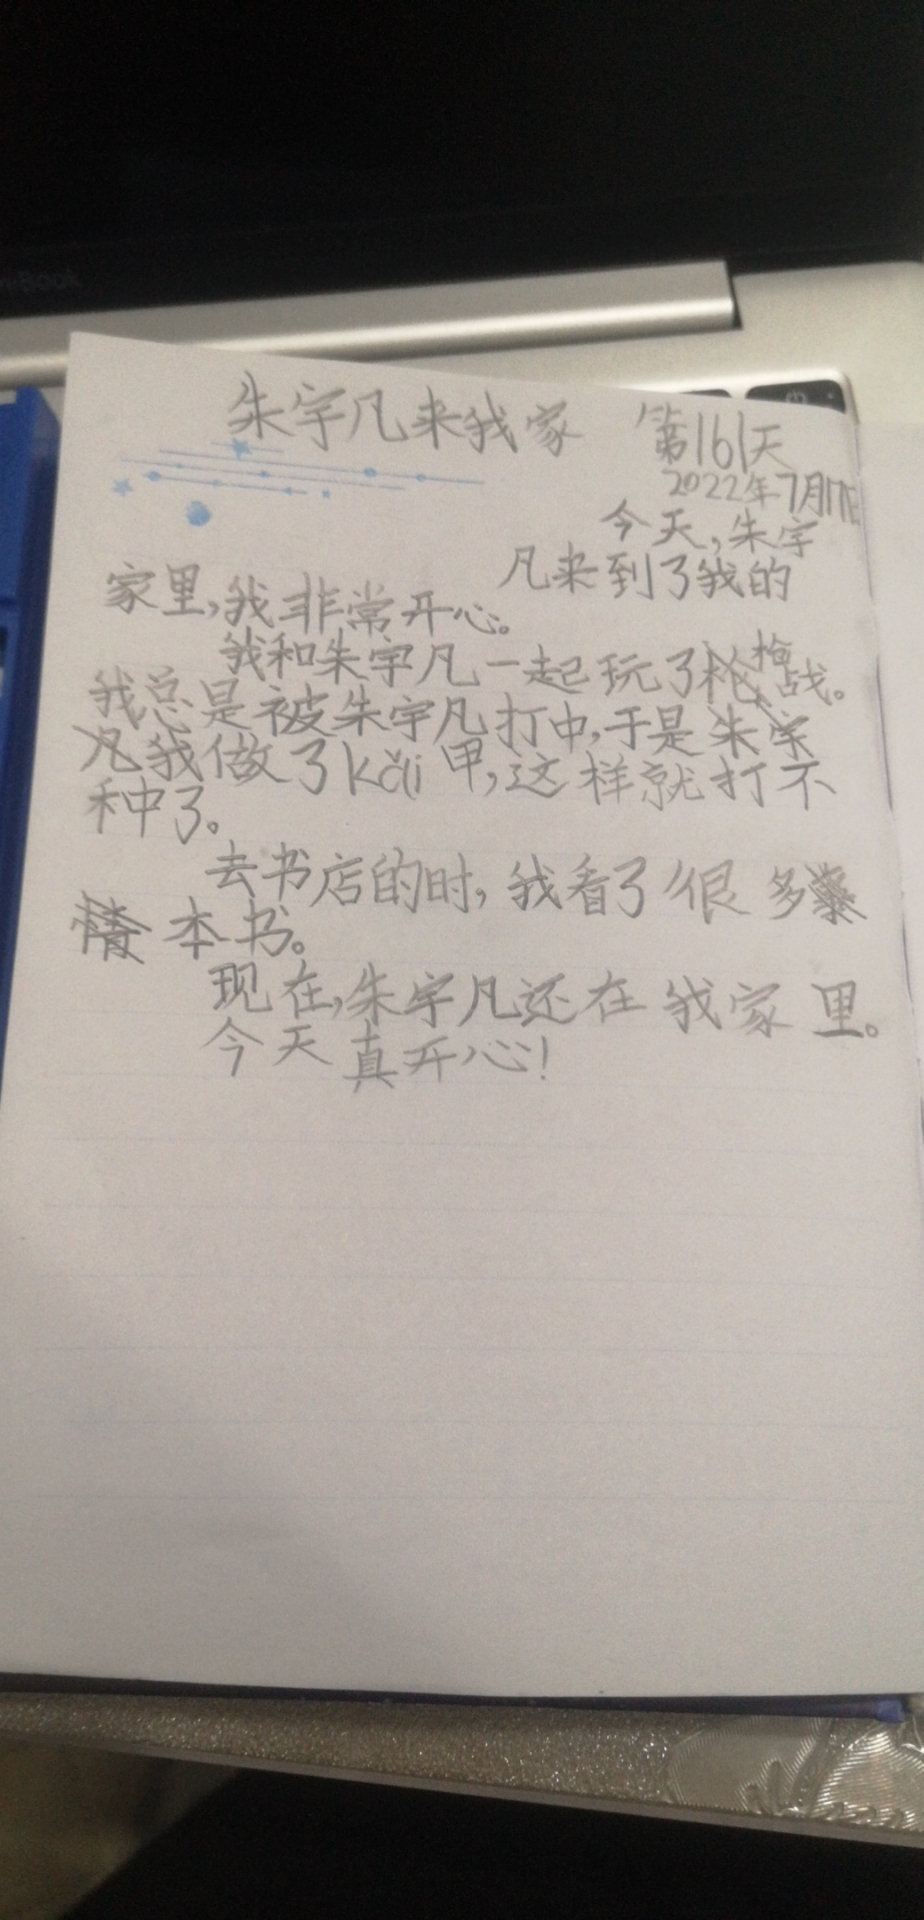 朱宇凡来我家 第161天
2022年7月17日
今天,朱宇
凡来到了我的
家里,我非常开心。
我和朱宇凡一起玩了枪战。
我总是被朱宇凡打中,于是朱宇
凡我做了kǎi甲,这样就打不
种了。
去书店的时,我看了很多
本书。
现在,朱宇凡还在我家里。
今天真开心!